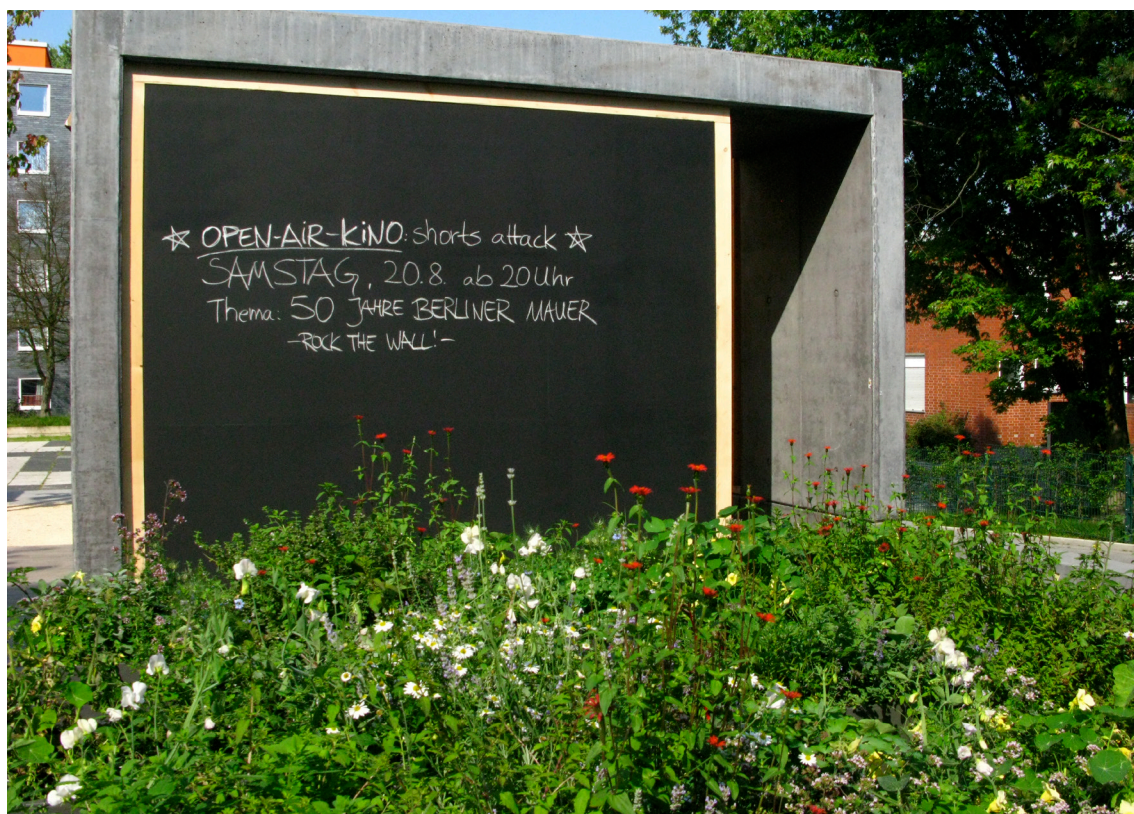 ☆ OPEN-AiR-KiNO: shorts attack ☆
SAMSTAG, 20.8. ab 20 Uhr
Thema: 50 JAHRE BERLINER MAUER
-ROCK THE WALL!-